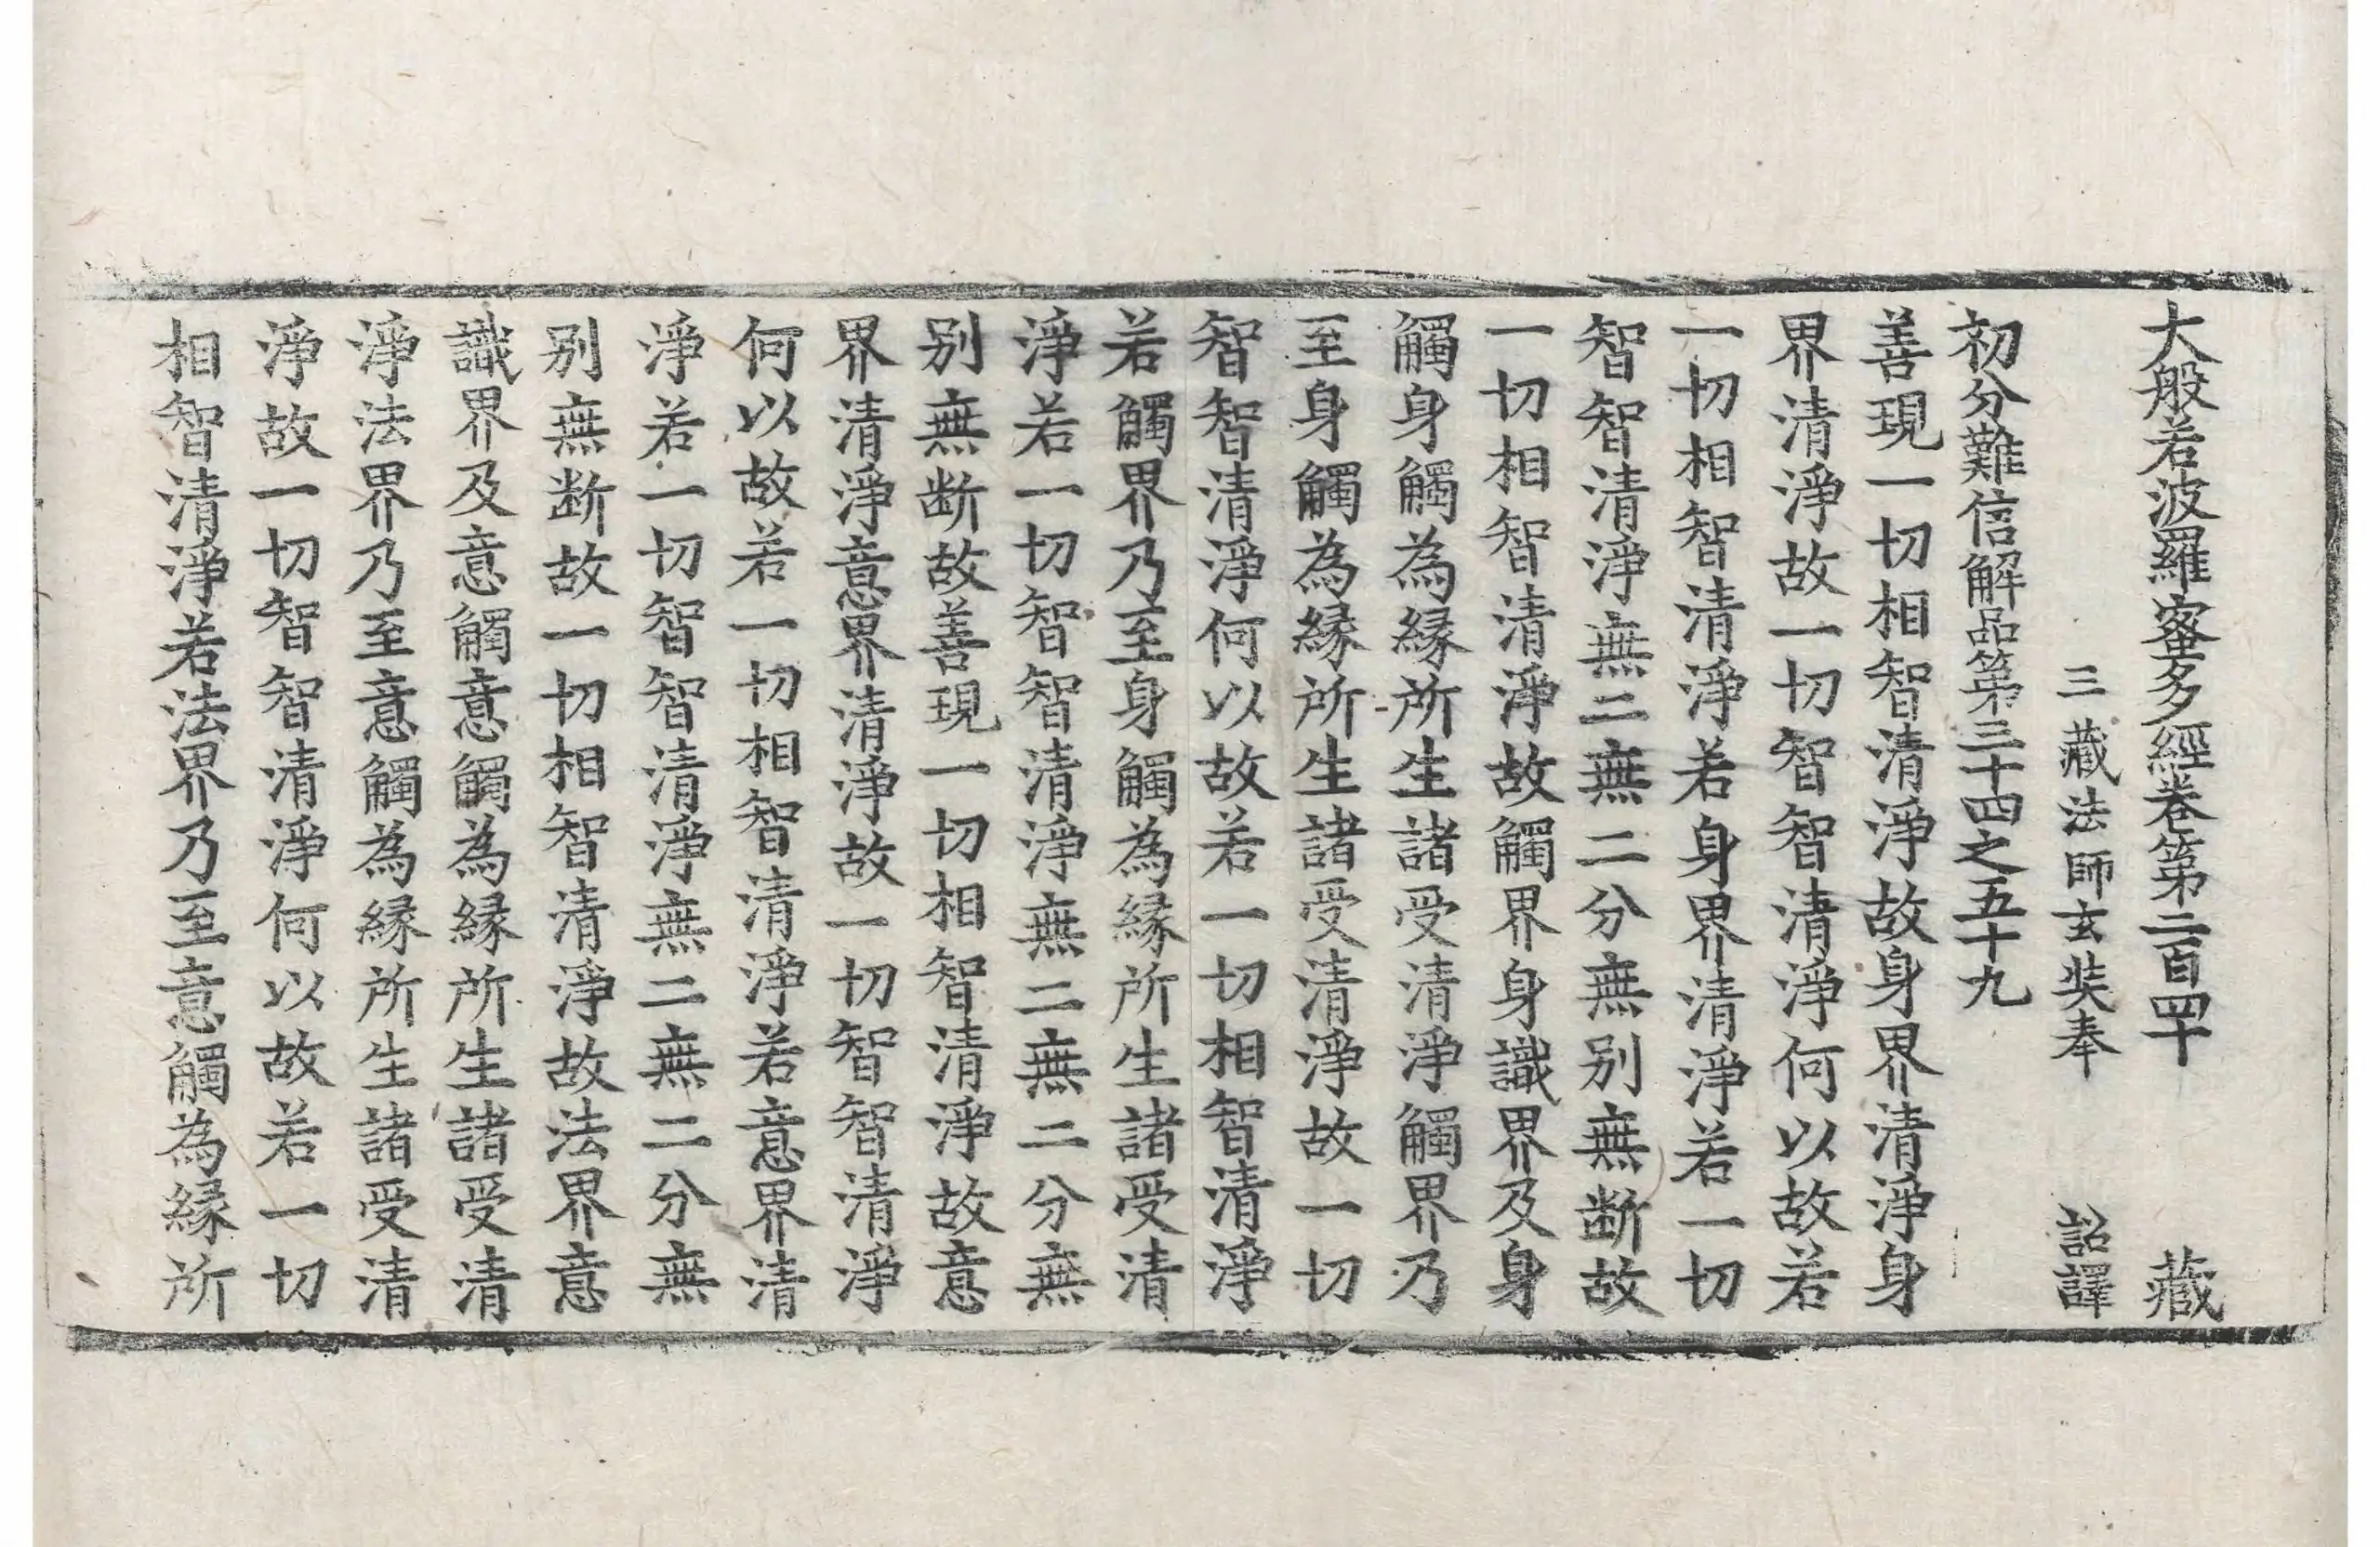 大般若波羅蜜多經卷第二百四十 藏
三藏法師玄奘奉 詔譯
初分難信解品第三十四之五十九
善現一切相智清淨故身界清淨身
界清淨故一切智智清淨何以故若
一切相智清淨若身界清淨若一切
智智清淨無二無二分無别無断故
一切相智清淨故觸界身識界及身
觸身觸為緣所生諸受清淨觸界乃
至身觸為緣所生諸受清淨故一切
智智清淨何以故若一切相智清淨
若觸界乃至身觸為緣所生諸受清
淨若一切智智清淨無二無二分無
别無断故善現一切相智清淨故意
界清淨意界清淨故一切智智清淨
何以故若一切相智清淨若意界清
淨若一切智智清淨無二無二分無
别無断故一切相智清淨故法界意
識界及意觸意觸為緣所生諸受清
淨法界乃至意觸為緣所生諸受清
淨故一切智智清淨何以故若一切
相智清淨若法界乃至意觸為緣所